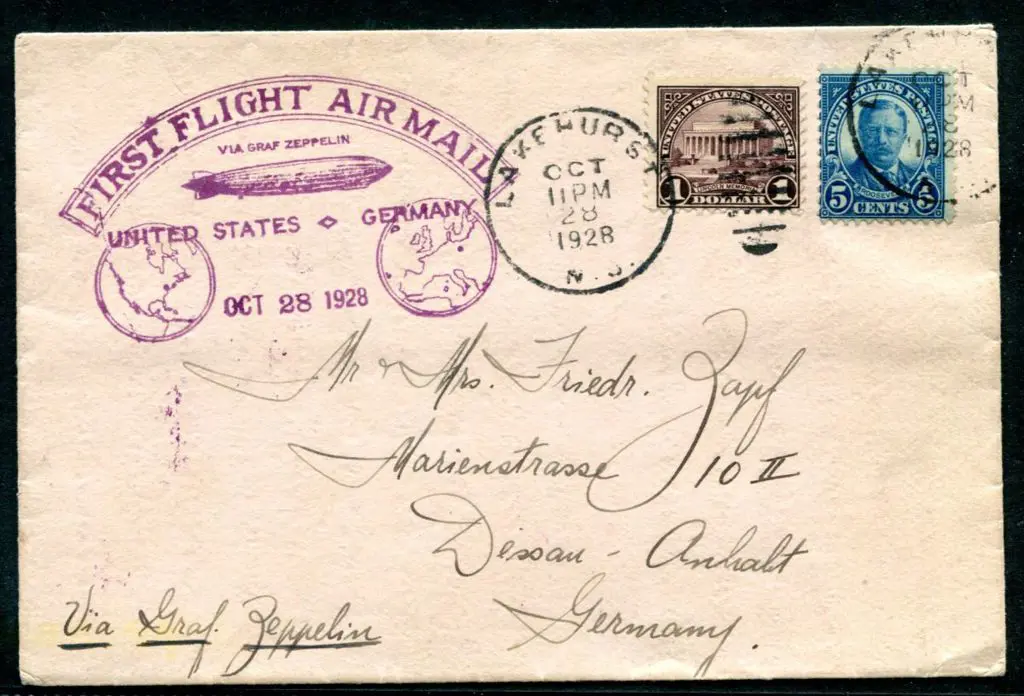 FIRST FLIGHT AIR MAIL
VIA GRAF ZEPPELIN
UNITED STATES ◇ GERMANY
OCT 28 1928
LAKEHURST
OCT
11 PM
28
1928
N.J.
UNITED STATES POSTAGE
LINCOLN MEMORIAL
1 1
DOLLAR
UNITED STATES POSTAGE
ROOSEVELT
5 5
CENTS
OCT
PM
1928
Mr & Mrs. Friedr. Zapf
Marienstrasse 10 II
Dessau - Anhalt
Germany.
Via Graf. Zeppelin